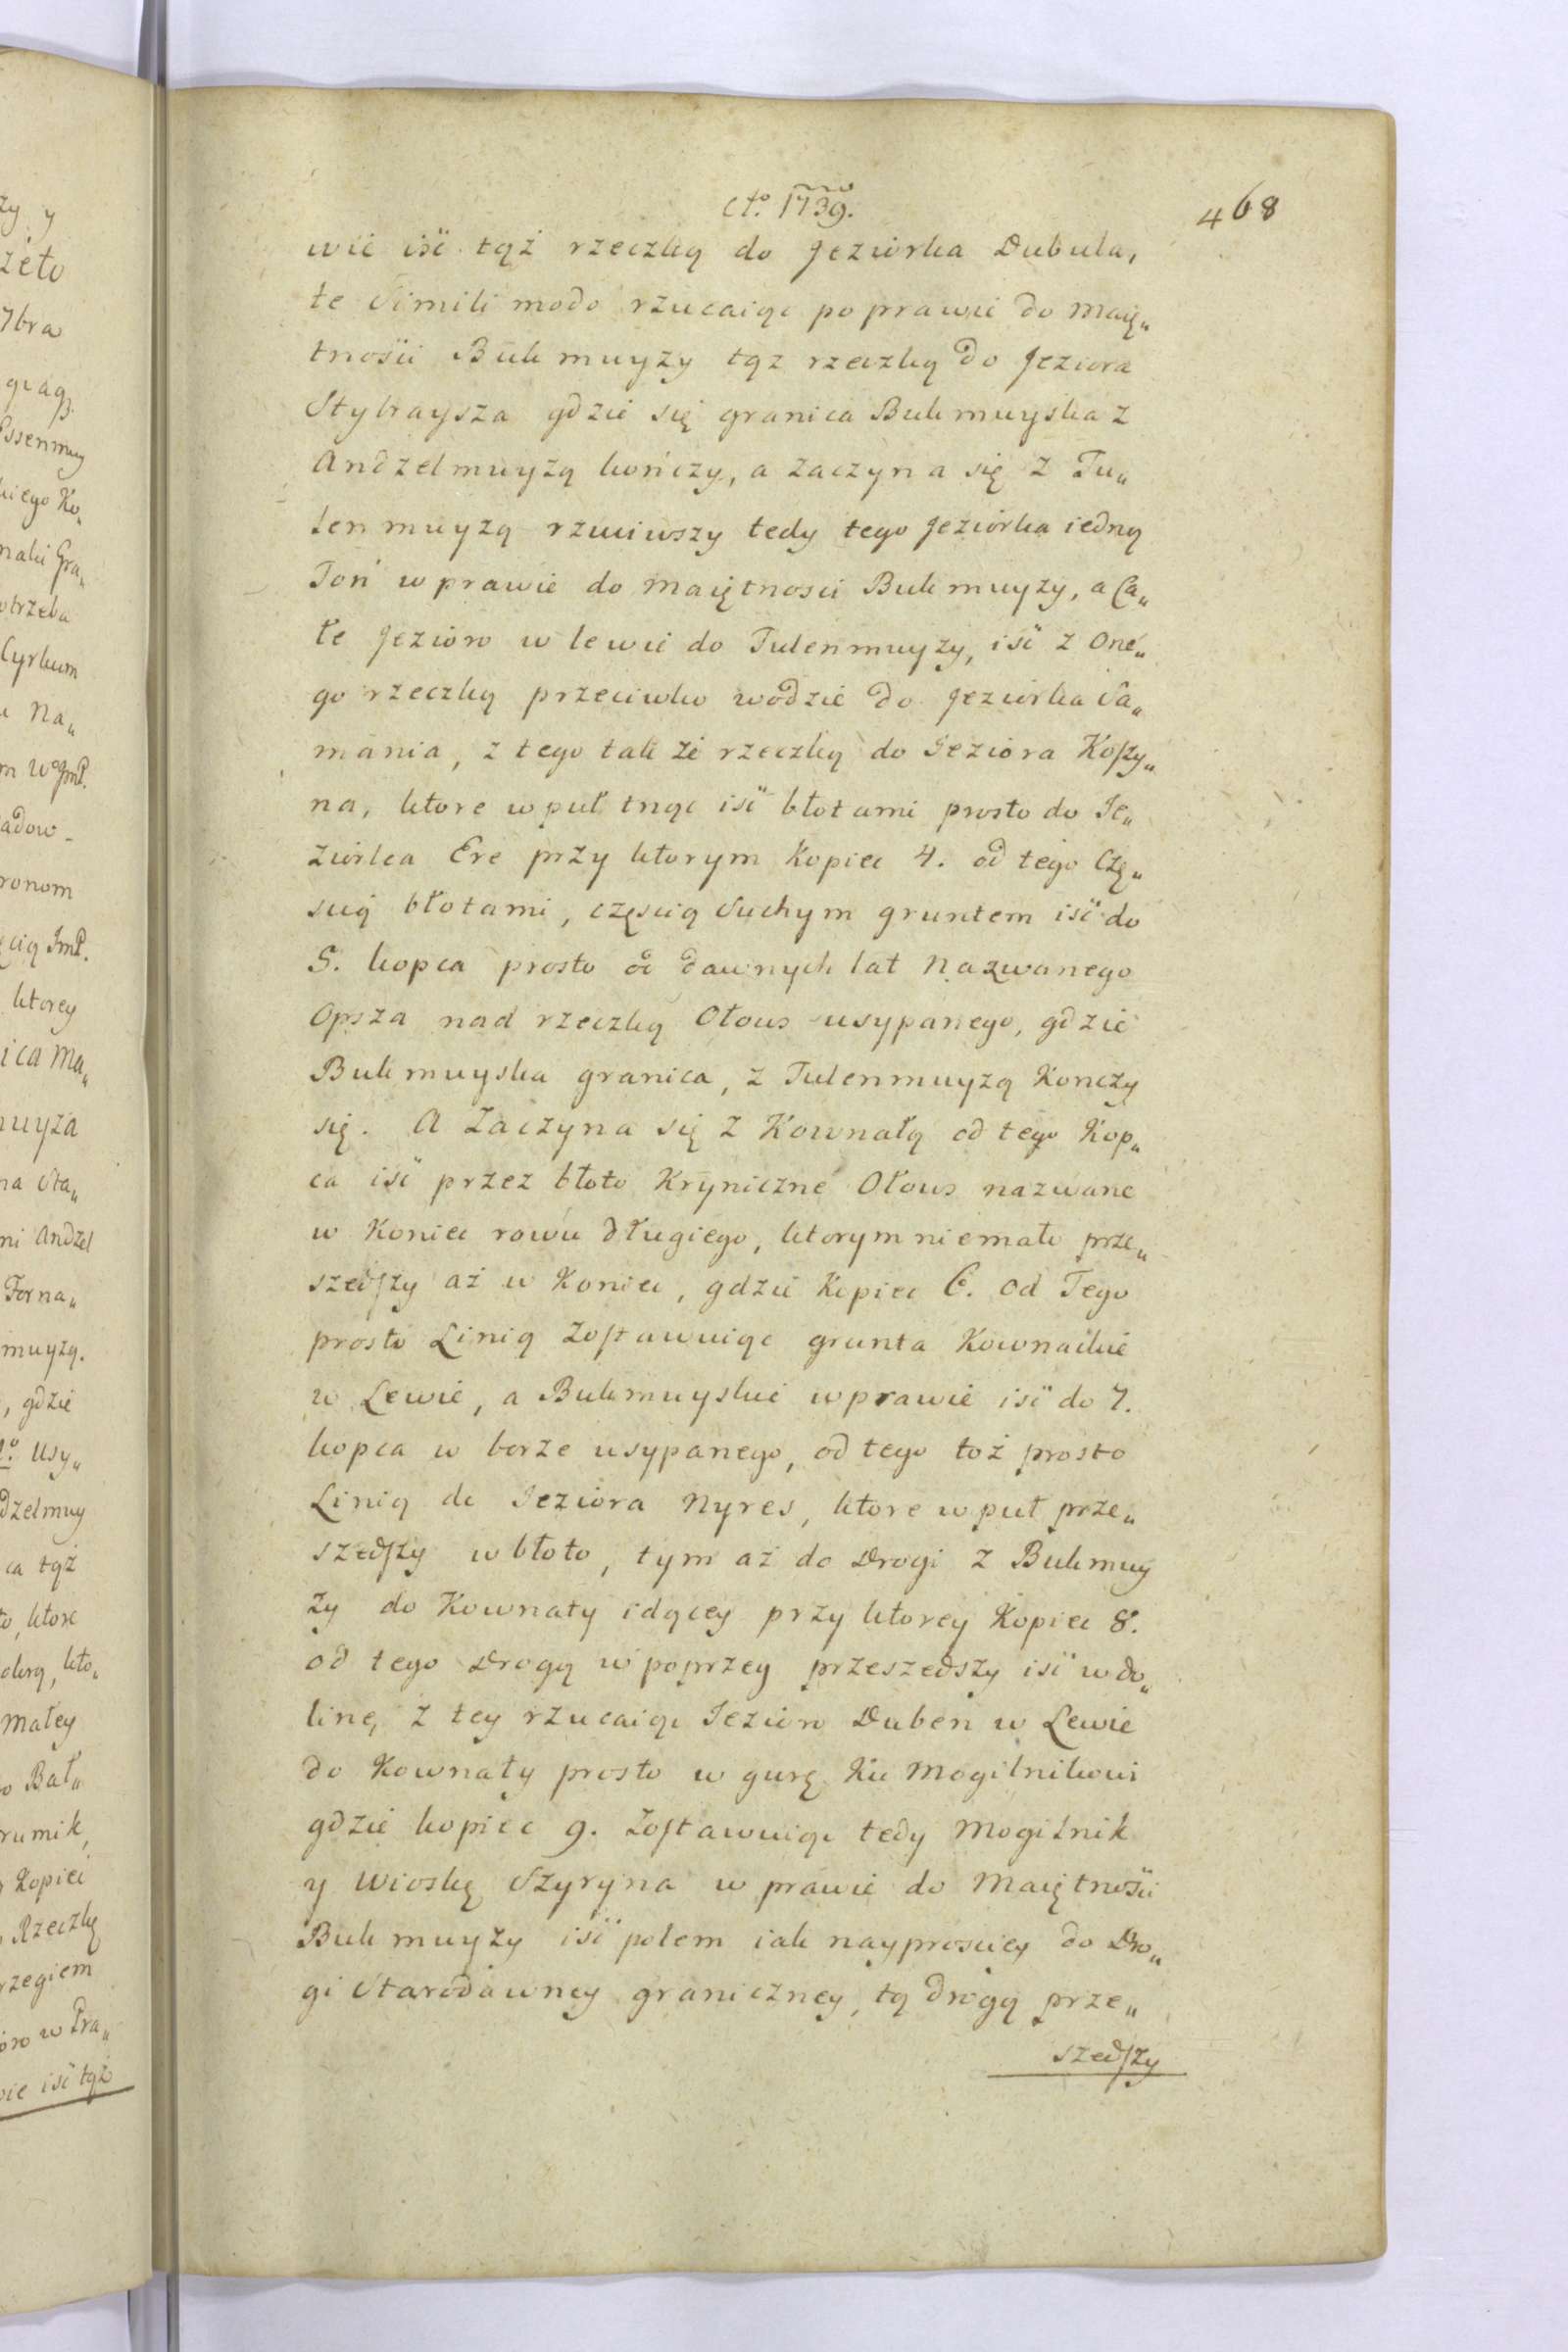 Ao. 1739.
468
wić iść tąż rzeczką do Jeziorka Dubula,
te Simili modo rzucaiąc po prawie do Maię„
tności Bukmuyży tąż rzeczką do Jeziora
Stybraysza gdzie się granica Bukmuyska z
Andzelmuyżą kończy, a zaczyna się z Tu„
lenmuyzą rzuciwszy tedy tego Jeziorka iedną
Toń w prawie do Maiętności Bukmuyży, a Ca„
łe Jezioro w lewie do Tulenmuyży, iść z One„
go rzeczką przeciwko wodzie do Jeziorka Sa„
mania, z tego tak że rzeczką do Jeziora Koszy„
na, ktore w puł tnąc iść błotami prosto do Je„
ziorka Ere przy ktorym Kopiec 4. od tego Czę„
scią błotami, częscią Suchym gruntem iść do
5. kopca prosto od dawnych lat Nazwanego
Opsza nad rzeczką Ołous usypanego, gdzie
Bukmuyska granica, z Tulenmuyzą Konczy
się. A Zaczyna się z Kownatą od tego Kop„
ca iść przez błoto Kryniczne Ołous nazwane
w Koniec rowu długiego, ktorym niemało prze„
szedszy aż w Koniec, gdzie Kopiec 6. od Tego
prosto Linią Zostawuiąc grunta Kownackie
w Lewie, a Bukmuyskie w prawie iść do 7.
kopca w borze usypanego, od tego toż prosto
Linią do Jeziora Nyres, ktore w puł prze„
szedszy w błoto, tym aż do Drogi z Bukmuy
ży do Kownaty idącey przy ktorey Kopiec 8.
od tego Drogą w poprzey przeszedszy iść w do„
linę, z tey rzucaiąc Jezioro Duben w Lewie
do Kownaty prosto w gurę Ku Mogilnikowi
gdzie kopiec 9. Zostawuiąc tedy Mogilnik
y Wioskę Szyryna w prawie do Maiętności
Bukmuyży iść polem iak nayprosciey do Dro„
gi Starodawney graniczney, tą drogą prze„
szedszy